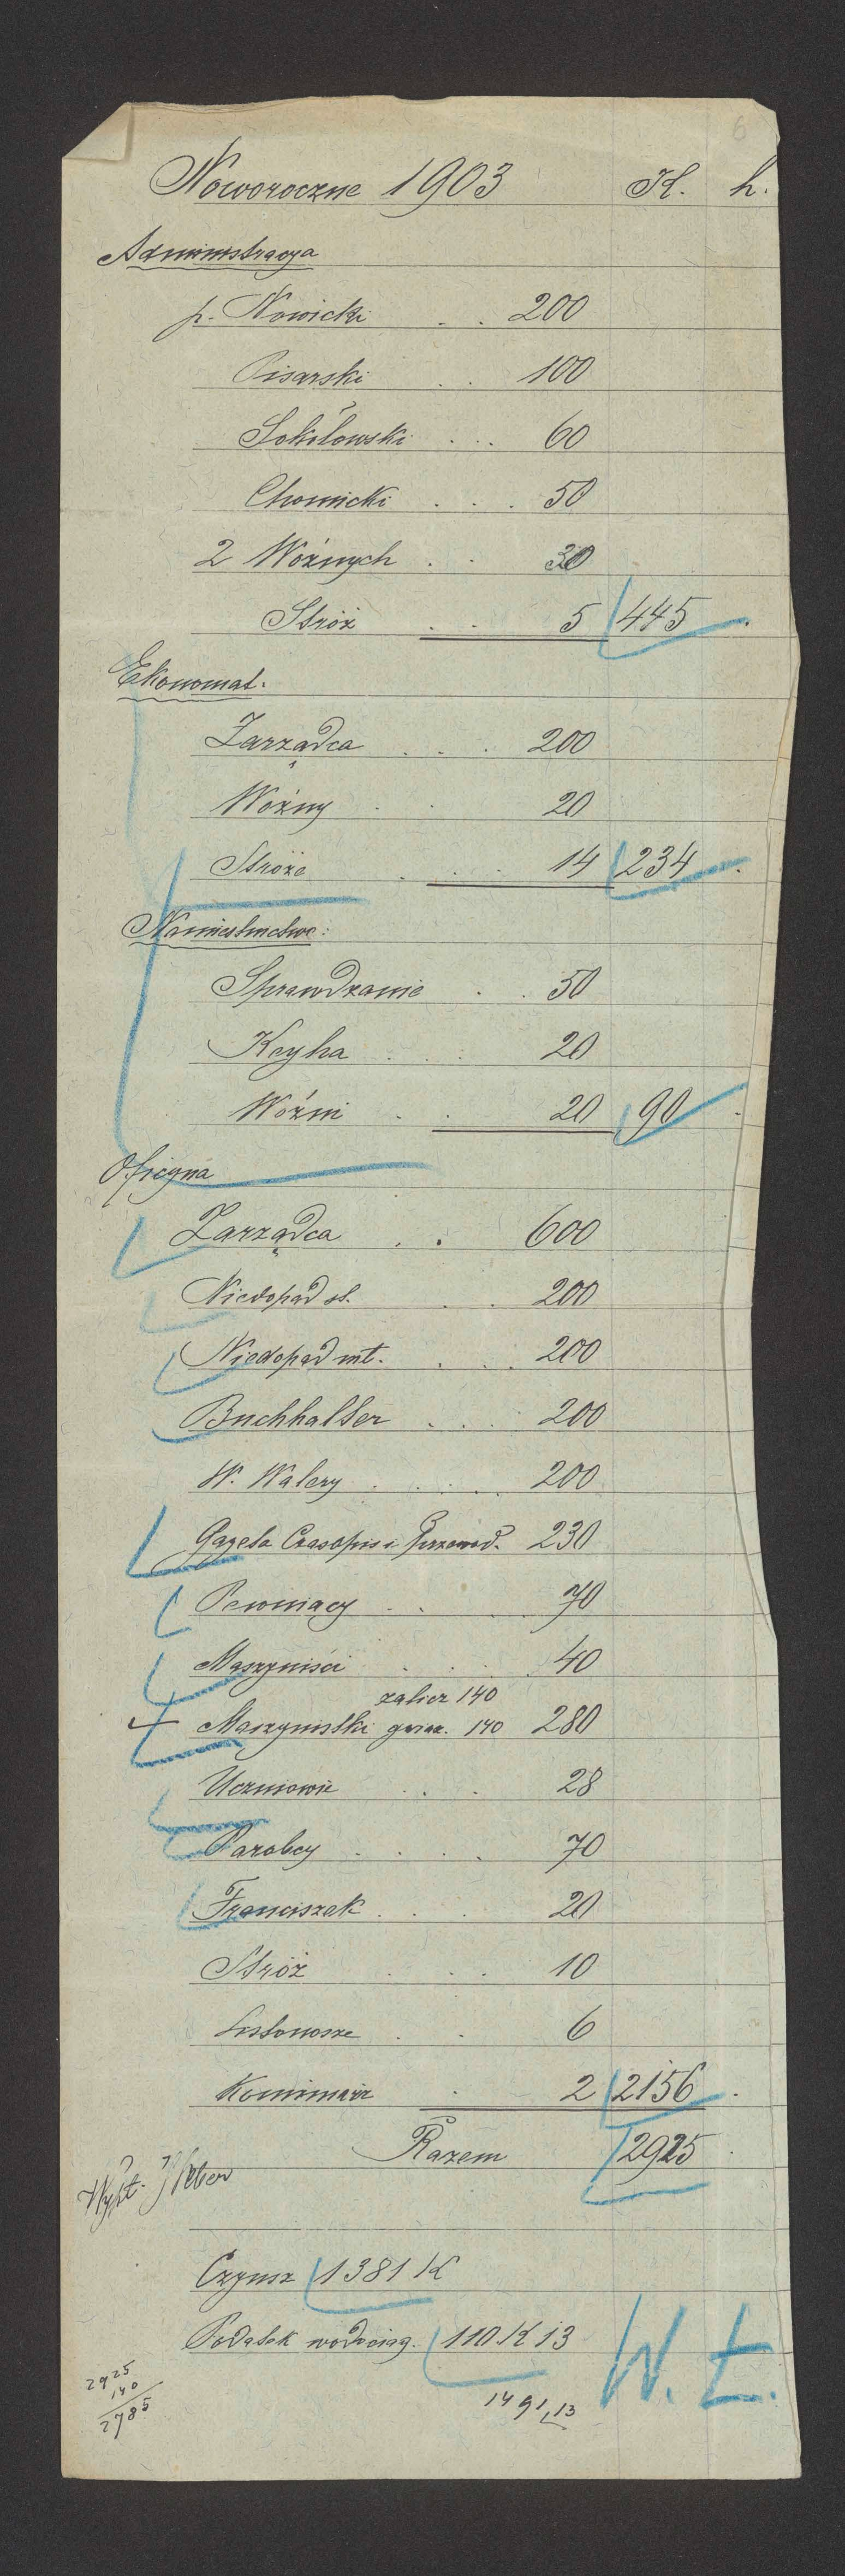 6
Noworoczne 1903 K. h.
Administracya
p. Nowicki . . 200
Pisarski . . 100
Sokołowski . . . 60
Chomicki . . . 50
2 Woźnych . . 30
Stróż . . 5 445 .
Ekonomat.
Zarządca . . . 200
Woźny . . 20
Stróże . . . 14 234 .
Namiestnictwo:
Sprawdzanie . . 50
20
Woźni . . 20 90 .
Oficyna
Zarządca . . 600
Niedopad st. . . 200
Niedopad mł. . . . 200
Buchhalter . . . 200
W. Walery . . . 200
Gazeta Czasopis i Przewod. 230
70
Maszyniści . . . 40
zalicz 140
+ Maszynistki gwiaz. 140 280
Uczniowie . . . 28
Parobcy . . . . 70
Franciszek . . . 20
Stróż . . . 10
Listonosze . . 6
Kominiarz . 2 2156 .
Razem 2925 .
Wypł.
Czynsz 1381 K
Podatek wodociąg. 110 K 13
2925
140
2785
1491,13
W. Ł.